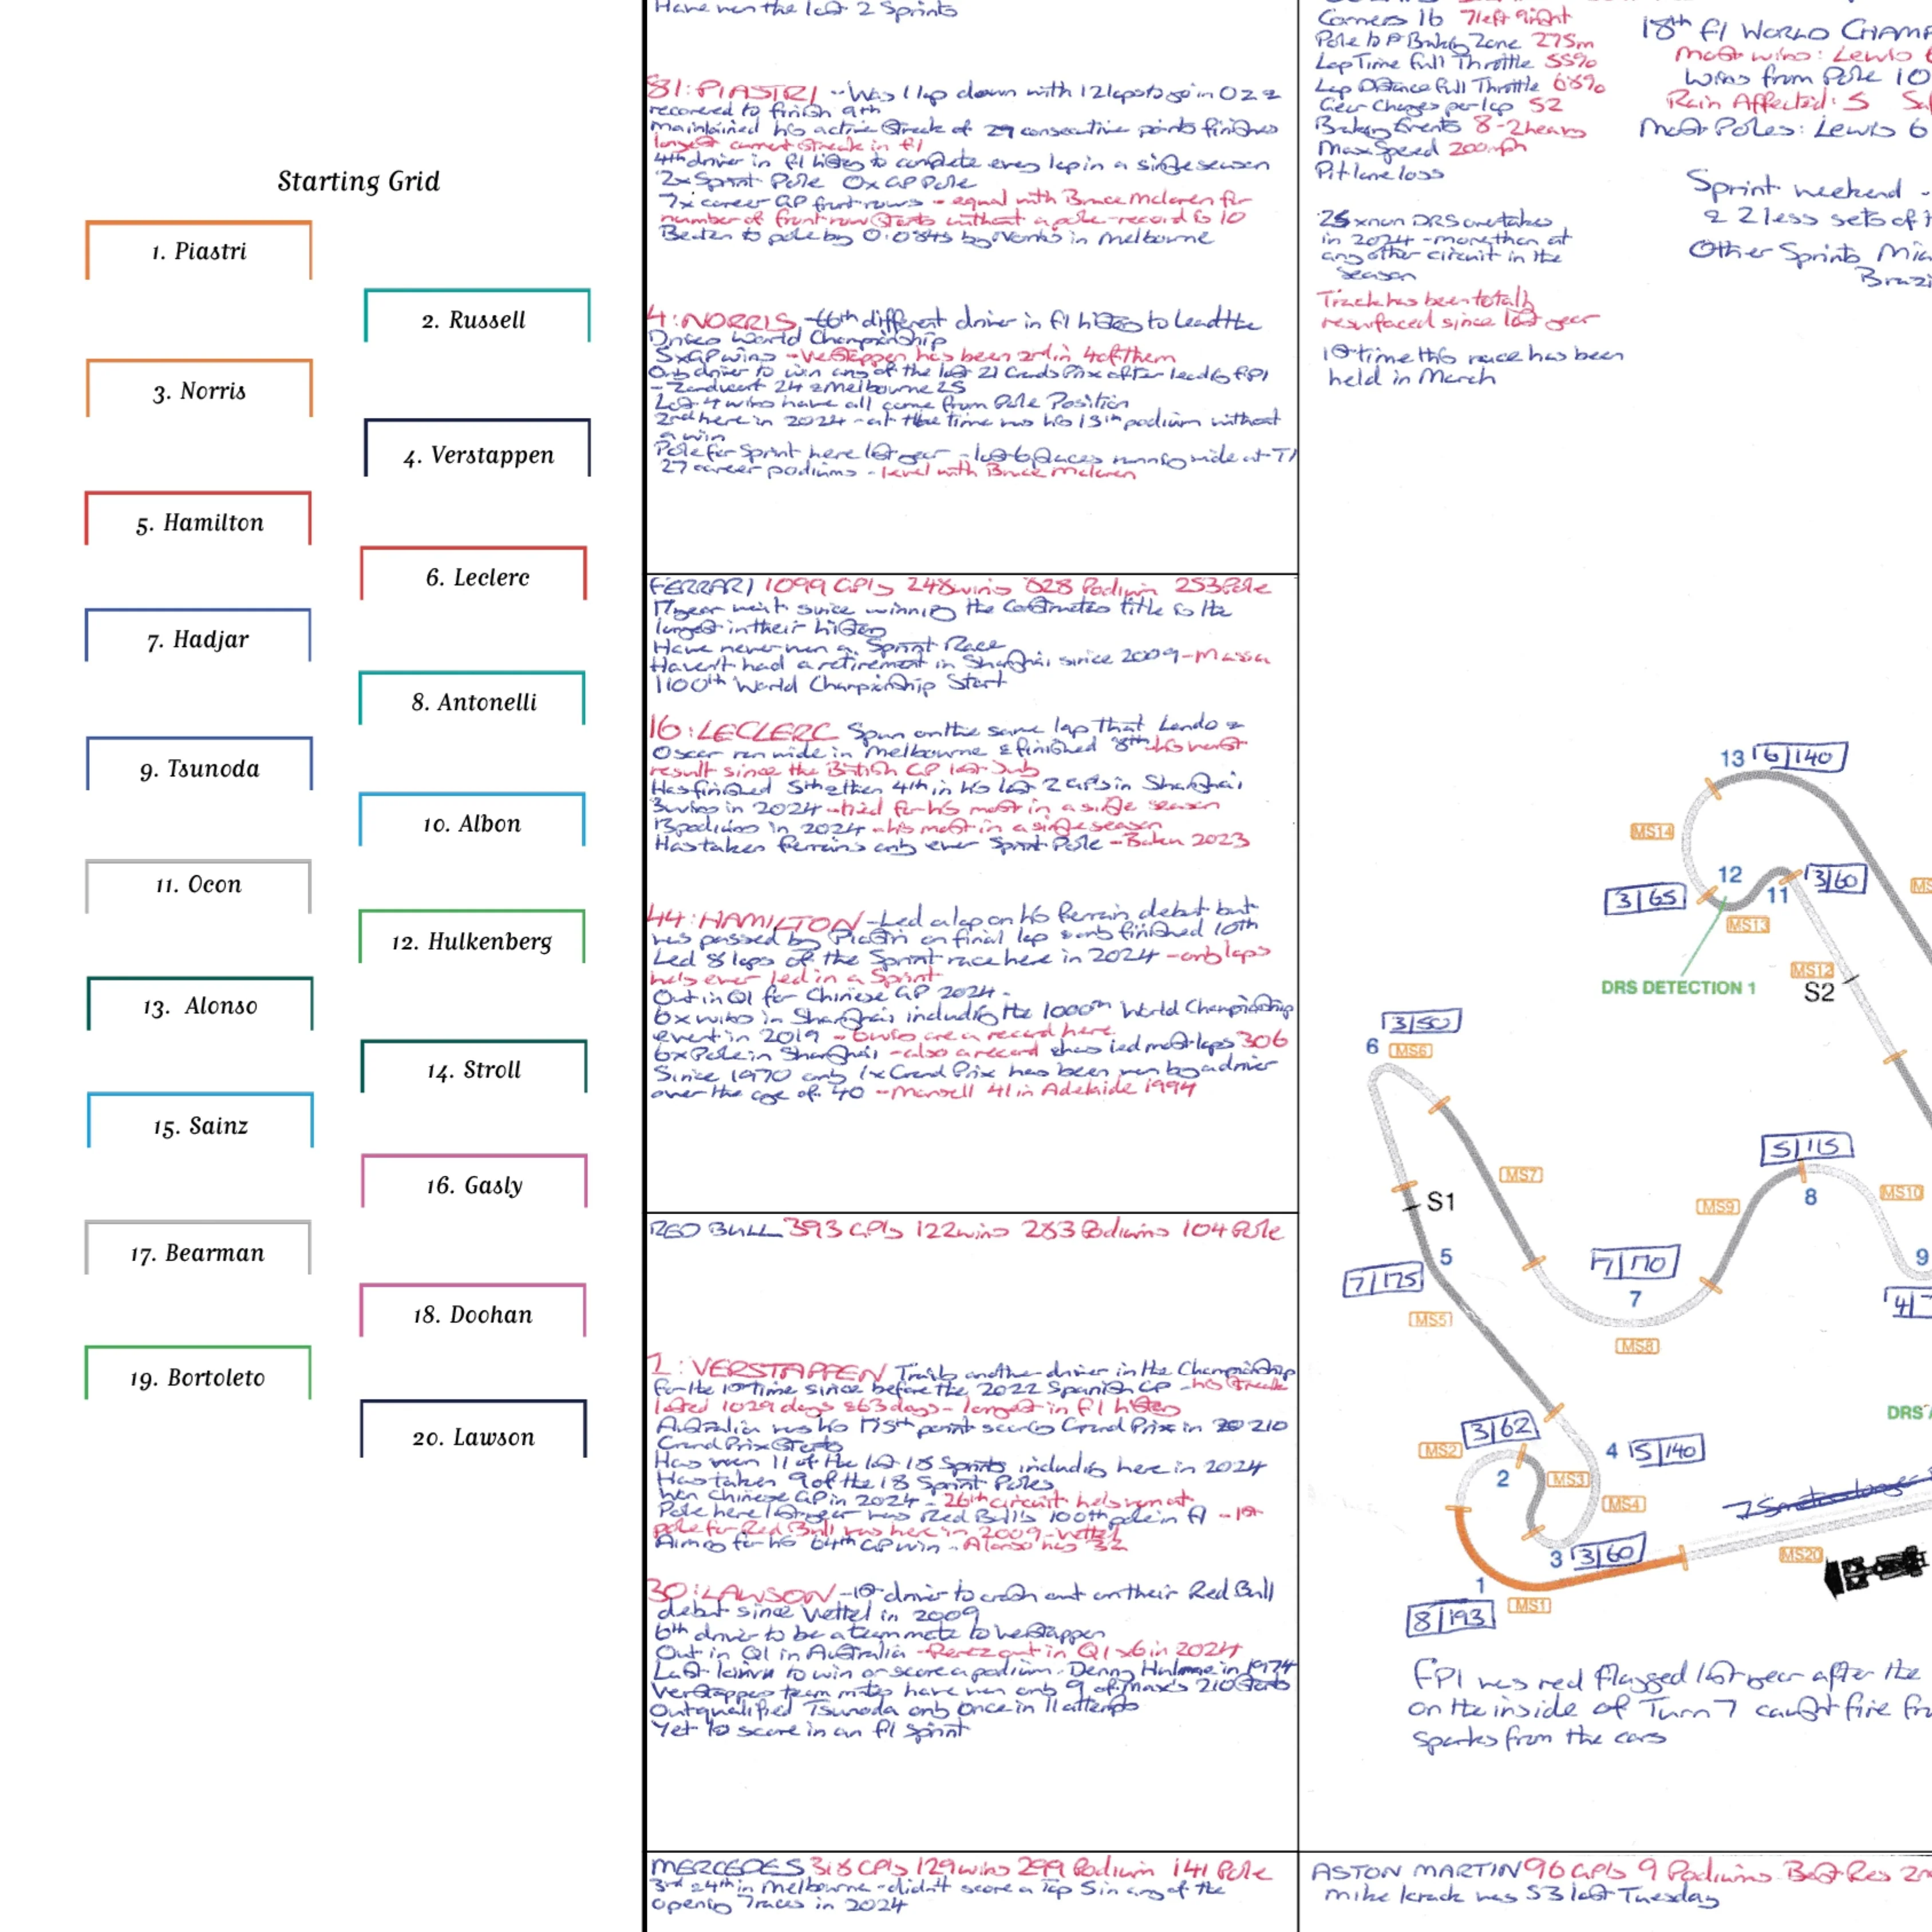 Starting Grid
1. Piastri
2. Russell
3. Norris
4. Verstappen
5. Hamilton
6. Leclerc
7. Hadjar
8. Antonelli
9. Tsunoda
10. Albon
11. Ocon
12. Hulkenberg
13. Alonso
14. Stroll
15. Sainz
16. Gasly
17. Bearman
18. Doohan
19. Bortoleto
20. Lawson
Have won the last 2 Sprints
81: PIASTRI - Was 1 lap down with 12 laps to go in OZ &
recovered to finish 9th
maintained his active streak of 29 consecutive points finishes
longest current streak in f1
4th driver in f1 history to complete every lap in a single season
2x Sprint Pole 0x GP Pole
7x career GP front rows - equal with Bruce Mclaren for
number of front row starts without a pole - record is 10
Beaten to pole by 0.084s by Norris in Melbourne
4: NORRIS - 66th different driver in f1 history to lead the
Drivers World Championship
5x GP wins - Verstappen has been 2nd in 4 of them
Only driver to win any of the last 21 Grands Prix after leading FP1
- Zandvoort 24 & Melbourne 25
Last 4 wins have all come from Pole Position
2nd here in 2024 - at the time was his 15th podium without
a win
Pole for Sprint here last year - lost 6 places running wide at T1
27 career podiums - level with Bruce Mclaren
FERRARI 1099 GPs 248 wins 828 Podium 253 Pole
17 year wait since winning the Constructors title is the
longest in their history
Have never won a Sprint Race
Haven't had a retirement in Shanghai since 2009 - Massa
1100th World Championship Start
16: LECLERC Spun on the same lap that Lando &
Oscar ran wide in Melbourne & finished 8th his worst
result since the British GP last July
Has finished 5th & then 4th in his last 2 GPs in Shanghai
3 wins in 2024 - tied for his most in a single season
13 podiums in 2024 - his most in a single season
Has taken Ferrari's only ever Sprint Pole - Baku 2023
44: HAMILTON - Led a lap on his Ferrari debut but
was passed by Piastri on final lap & only finished 10th
Led 8 laps of the Sprint race here in 2024 - only laps
he's ever led in a Sprint
Out in Q1 for Chinese GP 2024
6x wins in Shanghai including the 1000th World Championship
event in 2019 - 6 wins are a record here
6x Pole in Shanghai - also a record & has led most laps 306
Since 1970 only 1x Grand Prix has been won by a driver
over the age of 40 - Mansell 41 in Adelaide 1994
RED BULL 393 GPs 122 wins 283 Podiums 104 Pole
1: VERSTAPPEN Trails another driver in the Championship
for the 1st time since before the 2022 Spanish GP - his streak
lasted 1029 days & 63 days - longest in f1 history
Australia was his 175th point scoring Grand Prix in 210
Grand Prix Starts
Has won 11 of the last 18 Sprints including here in 2024
Has taken 9 of the 18 Sprint Poles
Won Chinese GP in 2024 - 26th circuit he's won at
Pole here last year was Red Bull's 100th pole in f1 - 1st
pole for Red Bull was here in 2009 - Vettel
Aiming for his 64th GP win - Alonso has 32
30: LAWSON - 1st driver to crash out on their Red Bull
debut since Vettel in 2009
6th driver to be a team mate to Verstappen
Out in Q1 in Australia - Perez out in Q1 x6 in 2024
Last kiwi to win or score a podium - Denny Hulme in 1974
Verstappen team mates have won only 9 of Max's 210 Starts
Outqualified Tsunoda only once in 11 attempts
Yet to score in an f1 Sprint
MERCEDES 318 GPs 129 wins 299 Podium 141 Pole
3rd & 4th in Melbourne - didn't score a Top 5 in any of the
opening 7 races in 2024
Corners 16 7 left 9 right
Pole to 1st Braking Zone 275m
Lap Time full Throttle 55%
Lap Distance full Throttle 68%
Gear Changes per lap 52
Braking Events 8 - 2 heavy
Max Speed 200mph
Pit lane loss
25 x non DRS overtakes
in 2024 - more than at
any other circuit in the
Season
Track has been totally
resurfaced since last year
1st time this race has been
held in March
18th f1 WORLD CHAMP
Most wins: Lewis 6
Wins from Pole 10
Rain Affected: 5
Most Poles: Lewis 6
Sprint weekend -
& 2 less sets of
Other Sprints
13 6/140
MS14
12
11
3/60
3/65
MS13
DRS DETECTION 1
MS12
S2
3/50
6
MS6
S1
MS7
5/115
8
MS9
MS10
5
7/175
7/170
7
9
MS5
MS8
3/62
MS2
4 5/140
2
MS3
MS4
3 3/60
MS20
1
MS1
8/193
FP1 was red flagged last year after the
on the inside of Turn 7 caught fire
sparks from the cars
ASTON MARTIN 96 GPs 9 Podiums Best Res
Mike Krack was 53 last Tuesday